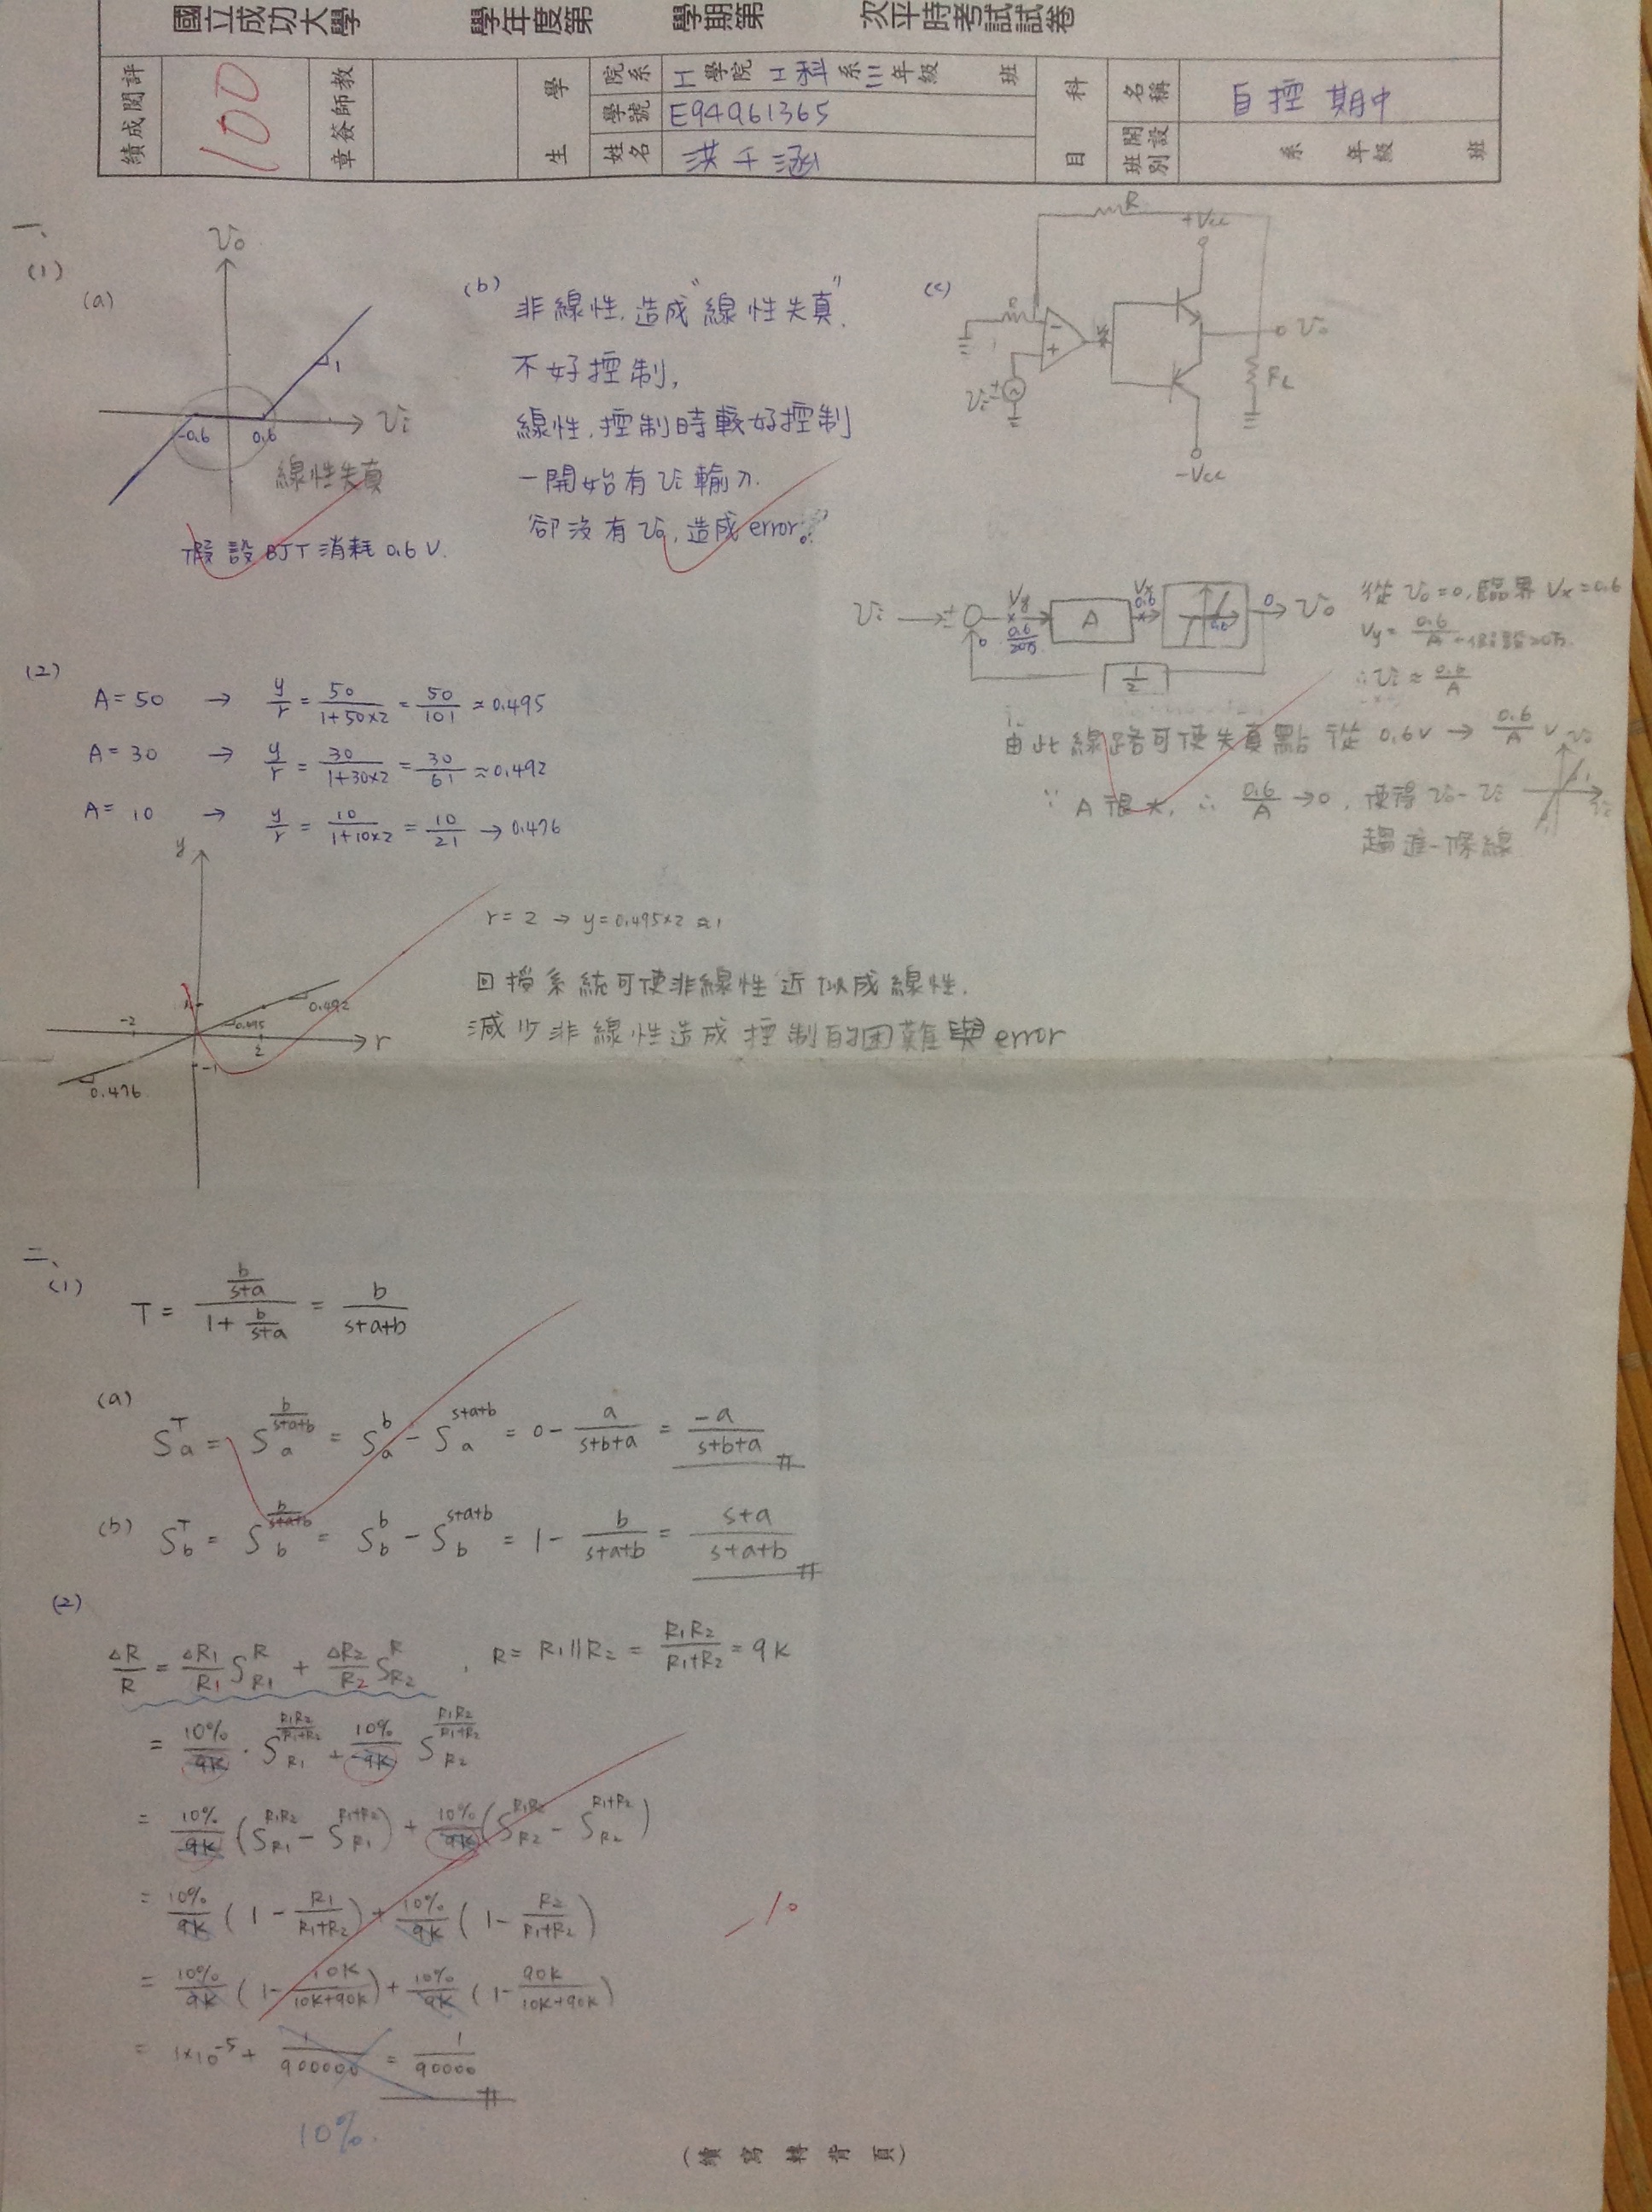 國立成功大學 學年度第 學期第 次平時考試試卷
績成閱評 100
章簽師教
學生
院系 工學院 工科系三年級 班
學號 E94961365
姓名 洪千涵
科目
名稱 自控 期中
開設班別 系 年級 班
一、
(1)
(a)
Vo
1
Vi
-0.6 0.6
線性失真
假設BJT消耗0.6V.
(b)
非線性,造成"線性失真".
不好控制,
線性,控制時較好控制
一開始有Vi輸入.
卻沒有Vo,造成error。
(c)
R
+Vcc
R
Vo
Vi
RL
-Vcc
Vi Vy 0.6/20萬 A Vx 0.6 0.6 0 Vo
0
1/2
從Vo=0,臨界Vx=0.6
Vy=0.6/A ←假設20萬.
∴Vi≈0.6/A
由此線路可使失真點從0.6V→0.6/A V
∵A很大,∴0.6/A→0,使得Vo-Vi
趨近一條線
Vo
Vi
(2)
A=50 → y/r = 50/(1+50×2) = 50/101 ≈0.495
A=30 → y/r = 30/(1+30×2) = 30/61 ≈0.492
A=10 → y/r = 10/(1+10×2) = 10/21 → 0.476
y
1
0.492
-2 0.495 2 r
-1
0.476
r=2 → y=0.495×2≈1
回授系統可使非線性近似成線性.
減少非線性造成控制的困難與error
二、
(1)
T = (b/(s+a))/(1+b/(s+a)) = b/(s+a+b)
(a)
S_a^T = S_a^(b/(s+a+b)) = S_a^b - S_a^(s+a+b) = 0 - a/(s+b+a) = -a/(s+b+a) #
(b) S_b^T = S_b^(b/(s+a+b)) = S_b^b - S_b^(s+a+b) = 1 - b/(s+a+b) = (s+a)/(s+a+b) #
(2)
ΔR/R = ΔR1/R1 S_R1^R + ΔR2/R2 S_R2^R , R = R1||R2 = R1R2/(R1+R2) = 9K
= 10%/9K · S_R1^(R1R2/(R1+R2)) + 10%/9K S_R2^(R1R2/(R1+R2))
= 10%/9K (S_R1^(R1R2) - S_R1^(R1+R2)) + 10%/9K (S_R2^(R1R2) - S_R2^(R1+R2))
= 10%/9K (1 - R1/(R1+R2)) + 10%/9K (1 - R2/(R1+R2))
= 10%/9K (1 - 10K/(10K+90K)) + 10%/9K (1 - 90K/(10K+90K))
= 1×10^-5 + 1/900000 = 1/90000 #
10%.
(續寫轉背頁)